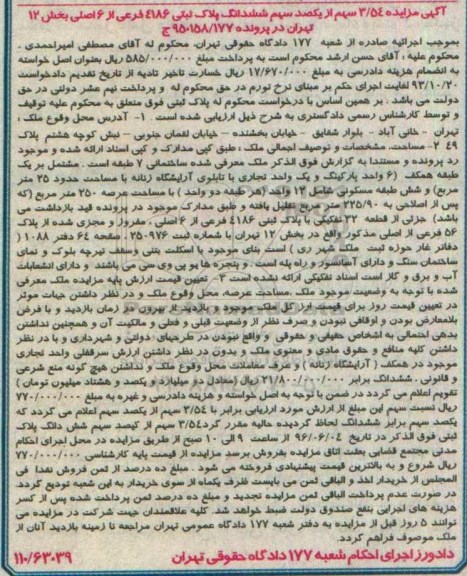 آگهی مزایده ۳/۵۴ سهم از یکصد سهم ششدانگ پلاک ثبتی ۴۱۸۶ فرعی از ۶ اصلی بخش ۱۲
تهران در پرونده ۹۵۰۱۵۸/۱۷۷ ج
بموجب اجرائیه صادره از شعبه ۱۷۷ دادگاه حقوقی تهران، محکوم له آقای مصطفی امیراحمدی .
محکوم علیه : آقای حسن ارشد محکوم است به پرداخت مبلغ ۵۸۵/۰۰۰/۰۰۰ ریال بعنوان اصل خواسته
به انضمام هزینه دادرسی به مبلغ ۱۷/۶۷۰/۰۰۰ ریال خسارت تاخیر تادیه از تاریخ تقدیم دادخواست
۹۳/۱۰/۲۰ لغایت اجرای حکم بر مبنای نرخ تورم در حق محکوم له و پرداخت نیم عشر دولتی در حق
دولت می باشد . بر همین اساس با درخواست محکوم له پلاک ثبتی فوق متعلق به محکوم علیه توقیف
و توسط کارشناس رسمی دادگستری به شرح ذیل ارزیابی شده است . ۱- آدرس محل وقوع ملک :
تهران - خانی آباد - بلوار شقایق - خیابان بخشنده - خیابان لقمان جنوبی - نبش کوچه هشتم پلاک
۴۹ ۲- مساحت، مشخصات و توصیف اجمالی ملک : طبق کپی مدارک و کپی اسناد ارائه شده و موجود
رد پرونده و مستندا به گزارش فوق الذکر ملک معرفی شده ساختمانی ۷ طبقه است . مشتمل بر یک
طبقه همکف (۶ واحد پارکینگ و یک واحد تجاری با تابلوی آرایشگاه زنانه با مساحت حدود ۲۵ متر
مربع) و شش طبقه مسکونی شامل ۱۲ واحد (هر طبقه دو واحد ) با مساحت عرصه ۲۵۰ متر مربع (که
پس از اصلاحی به ۲۲۵/۹۰ متر مربع تقلیل یافته و طبق مدارک موجود در پرونده قید بازداشت می
باشد) جزئی از قطعه ۳۲ تفکیکی با پلاک ثبتی ۴۱۸۶ فرعی از ۶ اصلی ، مفروز و مجزی شده از پلاک
۵۶ فرعی از اصلی مذکور واقع در بخش ۱۲ تهران با شماره ثبت ۲۵۰۹۷۶ ، صفحه ۶۴ دفتر ۱۰۸۸ (
دفاتر غار حوزه ثبت ملک شهر ری ) است بنای موجود با اسکلت بتنی و سقف تیرچه بلوک و نمای
ساختمان سنگ و دارای آسانسور و راه پله است . و پنجره ها یو پی وی سی می باشند و دارای انشعابات
آب و برق و گاز است اسناد تفکیکی ارائه نشده است ۳- تعیین قیمت ارزش پایه مزایده ملک معرفی
شده با توجه به وضعیت موجود ملک .مساحت عرصه، محل وقوع ملک و در نظر داشتن جهات موثر
در تعیین قیمت روز برای قیمت ارز کل ملک موجود و بازدید از بیرون در زمان بازدید و با فرض
بلامعارض بودن و اوقافی نبودن و صرف نظر از وضعیت قبلی و فعلی و مالکیت آن و همچنین نداشتن
بدهی احتمالی به اشخاص حقیقی و حقوقی و واقع نبودن در طرحهای دولتی و شهرداری و با در نظر
داشتن کلیه منافع و حقوق مادی و معنوی ملک و بدون در نظر داشتن ارزش سرقفلی واحد تجاری
موجود در همکف ( آرایشگاه زنانه ) و عرف معاملات محل وقوع ملک و نداشتن هیچ گونه منع شرعی
و قانونی . ششدانگ برابر ۲۱/۸۰۰/۰۰۰/۰۰۰ ریال (معادل دو میلیارد و یکصد و هشتاد میلیون تومان )
تقویم اعلام می گردد در ضمن با توجه به اصل خواسته و هزینه دادرسی و غیره به مبلغ ۷۷۰/۰۰۰/۰۰۰
ریال نسبت سهم این مبلغ از ارزش مورد ارزیابی برابر با ۳/۵۴ سهم از یکصد سهم اعلام می گردد که
یکصد سهم برابر ششدانگ لحاظ گردیده حالیه مقرر گردد ۳/۵۴ سهم از کیصد سهم شش دانگ پلاک
ثبتی فوق الذکر در تاریخ ۹۶/۰۶/۰۴ از ساعت ۹ الی ۱۰ صبح از طریق مزایده در محل اجرای احکام
مدنی مجتمع قضایی بعثت اتاق مزایده بفروش برسد مزایده از قیمت پایه کارشناسی ۷۷۰/۰۰۰/۰۰۰
ریال شروع و به بالاترین قیمت پیشنهادی فروخته می شود . مبلغ ده درصد از ثمن فروش نقدا فی
المجلس از خریدار اخذ و الباقی ثمن می بایست ظرف یکماه از سوی خریدار به این شعبه تودیع گردد.
در صورت عدم پرداخت الباقی ثمن مزایده تجدید و مبلغ ده درصد ثمن پرداخت شده پس از کسر
هزینه های اجرایی بنفع صندوق دولت ضبط خواهد شد. کلیه علاقمندان جهت شرکت در مزایده می
توانند ۵ روز قبل از مزایده به دفتر شعبه ۱۷۷ دادگاه عمومی تهران مراجعه تا زمینه بازدید آنان از
ملک موصوف فراهم گردد.
دادورز اجرای احکام شعبه ۱۷۷ دادگاه حقوقی تهران
۱۱۰/۶۳۰۳۹